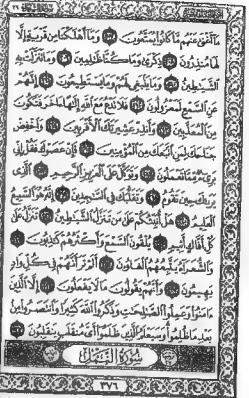 مَآ أَغْنَىٰ عَنْهُم مَّا كَانُوا۟ يُمَتَّعُونَ وَمَآ أَهْلَكْنَا مِن قَرْيَةٍ إِلَّا
لَهَا مُنذِرُونَ ذِكْرَىٰ وَمَا كُنَّا ظَٰلِمِينَ وَمَا تَنَزَّلَتْ بِهِ
ٱلشَّيَٰطِينُ وَمَا يَنۢبَغِى لَهُمْ وَمَا يَسْتَطِيعُونَ إِنَّهُمْ
عَنِ ٱلسَّمْعِ لَمَعْزُولُونَ فَلَا تَدْعُ مَعَ ٱللَّهِ إِلَٰهًا ءَاخَرَ فَتَكُونَ
مِنَ ٱلْمُعَذَّبِينَ وَأَنذِرْ عَشِيرَتَكَ ٱلْأَقْرَبِينَ وَٱخْفِضْ
جَنَاحَكَ لِمَنِ ٱتَّبَعَكَ مِنَ ٱلْمُؤْمِنِينَ فَإِنْ عَصَوْكَ فَقُلْ إِنِّى
بَرِىٓءٌ مِّمَّا تَعْمَلُونَ وَتَوَكَّلْ عَلَى ٱلْعَزِيزِ ٱلرَّحِيمِ ٱلَّذِى
يَرَىٰكَ حِينَ تَقُومُ وَتَقَلُّبَكَ فِى ٱلسَّٰجِدِينَ إِنَّهُۥ هُوَ ٱلسَّمِيعُ
ٱلْعَلِيمُ هَلْ أُنَبِّئُكُمْ عَلَىٰ مَن تَنَزَّلُ ٱلشَّيَٰطِينُ تَنَزَّلُ عَلَىٰ
كُلِّ أَفَّاكٍ أَثِيمٍ يُلْقُونَ ٱلسَّمْعَ وَأَكْثَرُهُمْ كَٰذِبُونَ
وَٱلشُّعَرَآءُ يَتَّبِعُهُمُ ٱلْغَاوُۥنَ أَلَمْ تَرَ أَنَّهُمْ فِى كُلِّ وَادٍ
يَهِيمُونَ وَأَنَّهُمْ يَقُولُونَ مَا لَا يَفْعَلُونَ إِلَّا ٱلَّذِينَ
ءَامَنُوا۟ وَعَمِلُوا۟ ٱلصَّٰلِحَٰتِ وَذَكَرُوا۟ ٱللَّهَ كَثِيرًا وَٱنتَصَرُوا۟ مِنۢ
بَعْدِ مَا ظُلِمُوا۟ وَسَيَعْلَمُ ٱلَّذِينَ ظَلَمُوٓا۟ أَىَّ مُنقَلَبٍ يَنقَلِبُونَ
سُورَةُ النَّمْلِ
٣٧٦